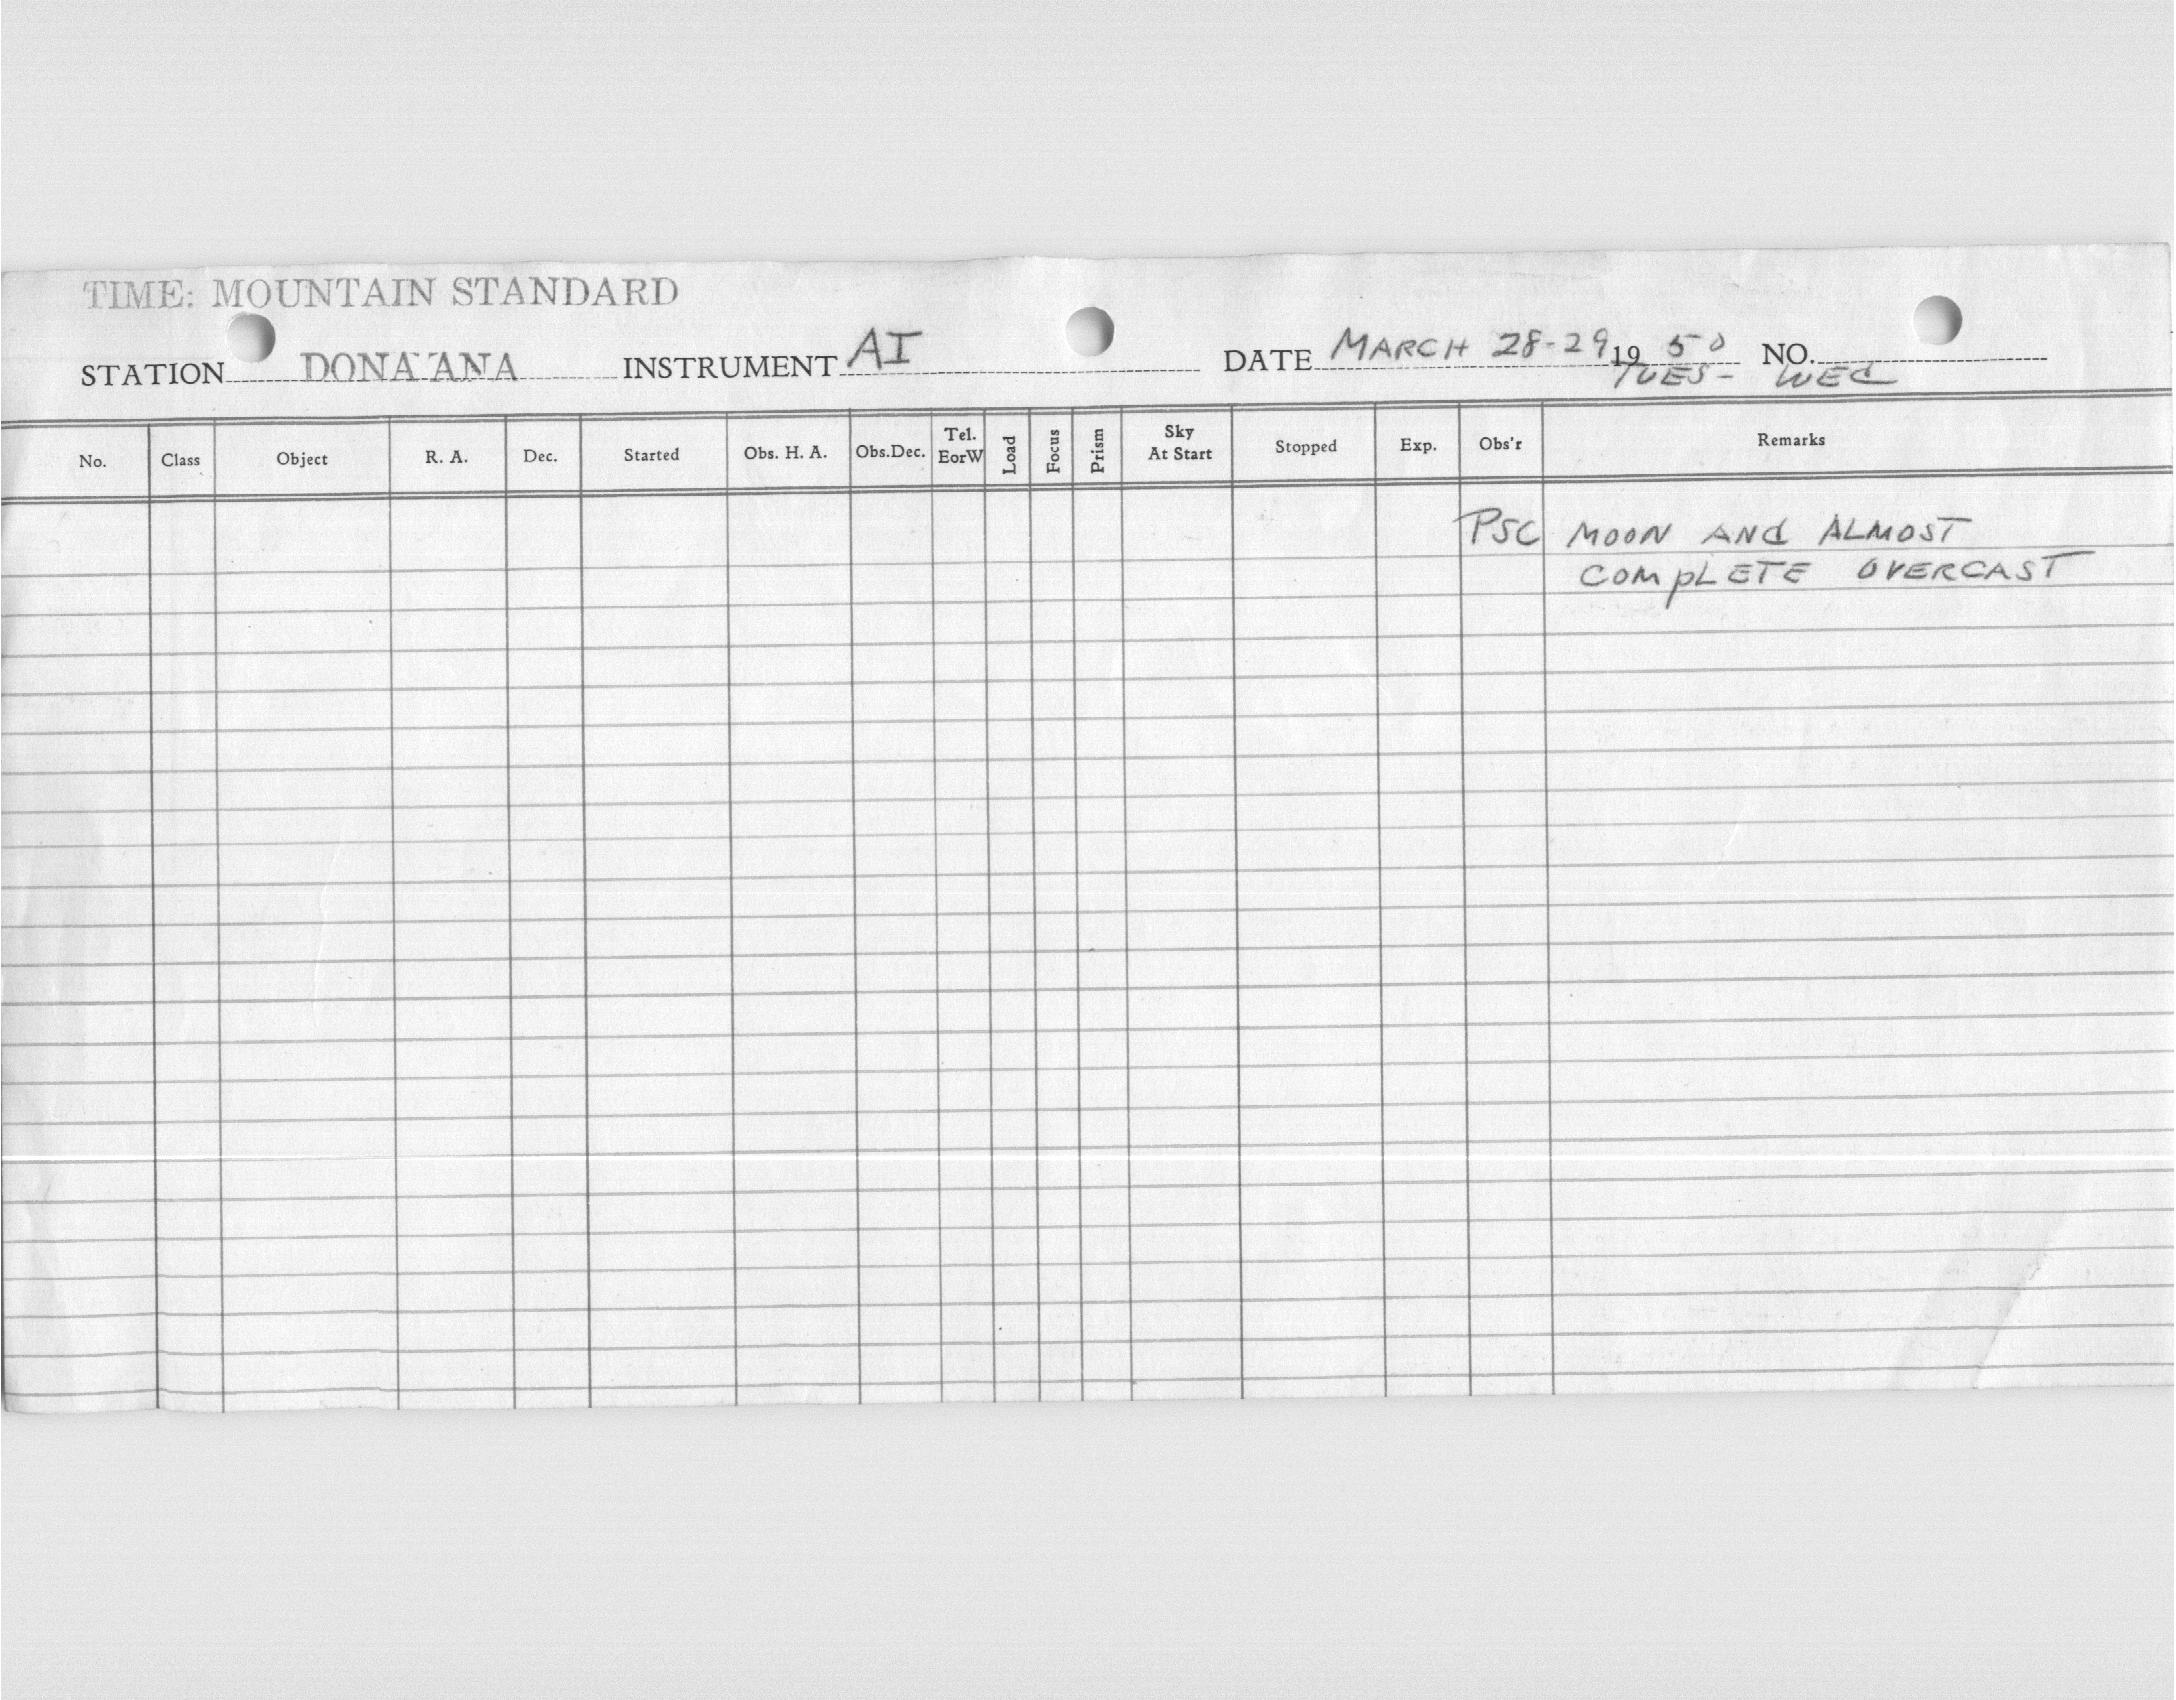 TIME: MOUNTAIN STANDARD
STATION DONA ANA INSTRUMENT AI DATE MARCH 28-29 19 50 NO.
TUES- WED
No. Class Object R. A. Dec. Started Obs. H. A. Obs.Dec. Tel. EorW Load Focus Prism Sky At Start Stopped Exp. Obs'r Remarks
PSC MOON AND ALMOST
COMPLETE OVERCAST